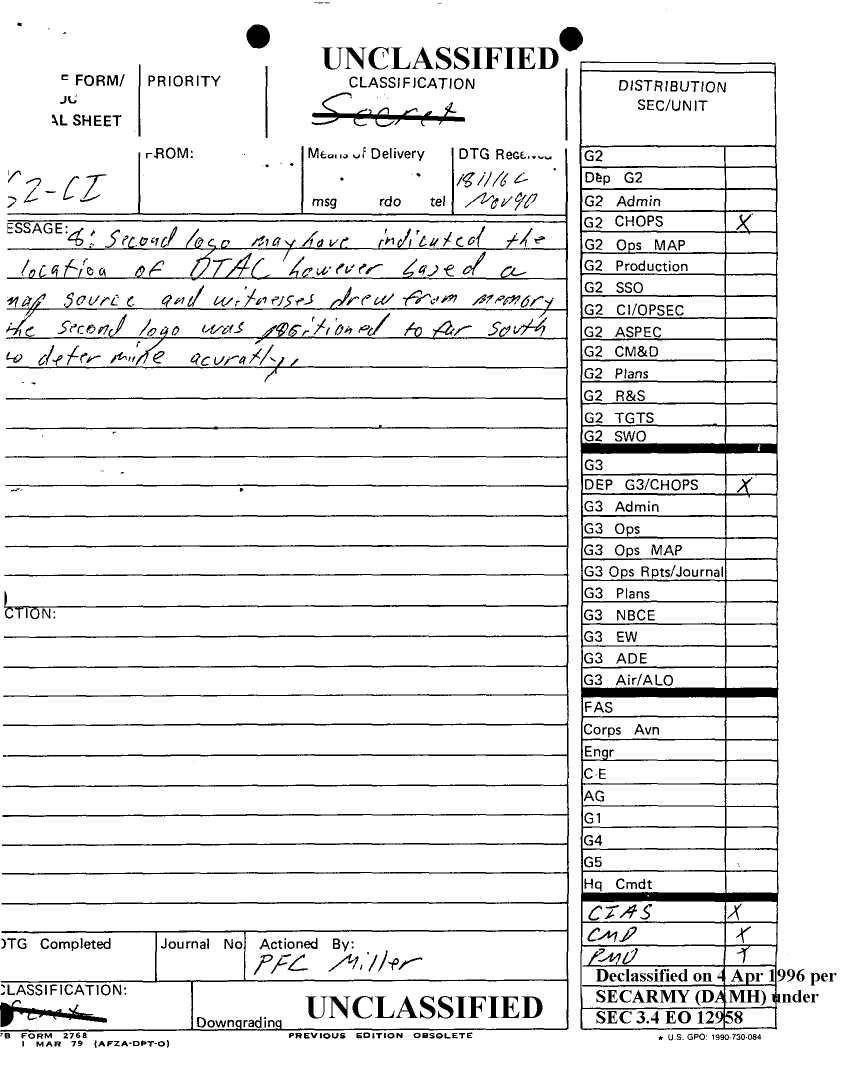 UNCLASSIFIED
FORM/
AL SHEET
PRIORITY
CLASSIFICATION
Secret
DISTRIBUTION
SEC/UNIT
FROM:
Means of Delivery
DTG Received
G2-CI
msg rdo tel
181116 L
Nov 90
ESSAGE: 8: Second logo may have indicated the
location of DTAC however based a
map source and witnesses drew from memory
the second logo was positioned to far south
to determine acuratly.
CTION:
G2
Dep G2
G2 Admin
G2 CHOPS X
G2 Ops MAP
G2 Production
G2 SSO
G2 CI/OPSEC
G2 ASPEC
G2 CM&D
G2 Plans
G2 R&S
G2 TGTS
G2 SWO
G3
DEP G3/CHOPS X
G3 Admin
G3 Ops
G3 Ops MAP
G3 Ops Rpts/Journal
G3 Plans
G3 NBCE
G3 EW
G3 ADE
G3 Air/ALO
FAS
Corps Avn
Engr
C-E
AG
G1
G4
G5
Hq Cmdt
CIAS X
CMD X
PMO X
DTG Completed
Journal No
Actioned By:
PFC Miller
CLASSIFICATION:
Secret
Downgrading
UNCLASSIFIED
Declassified on 4 Apr 1996 per
SECARMY (DAMH) under
SEC 3.4 EO 12958
FB FORM 2768
1 MAR 79 (AFZA-DPT-O)
PREVIOUS EDITION OBSOLETE
* U.S. GPO: 1990-730-084